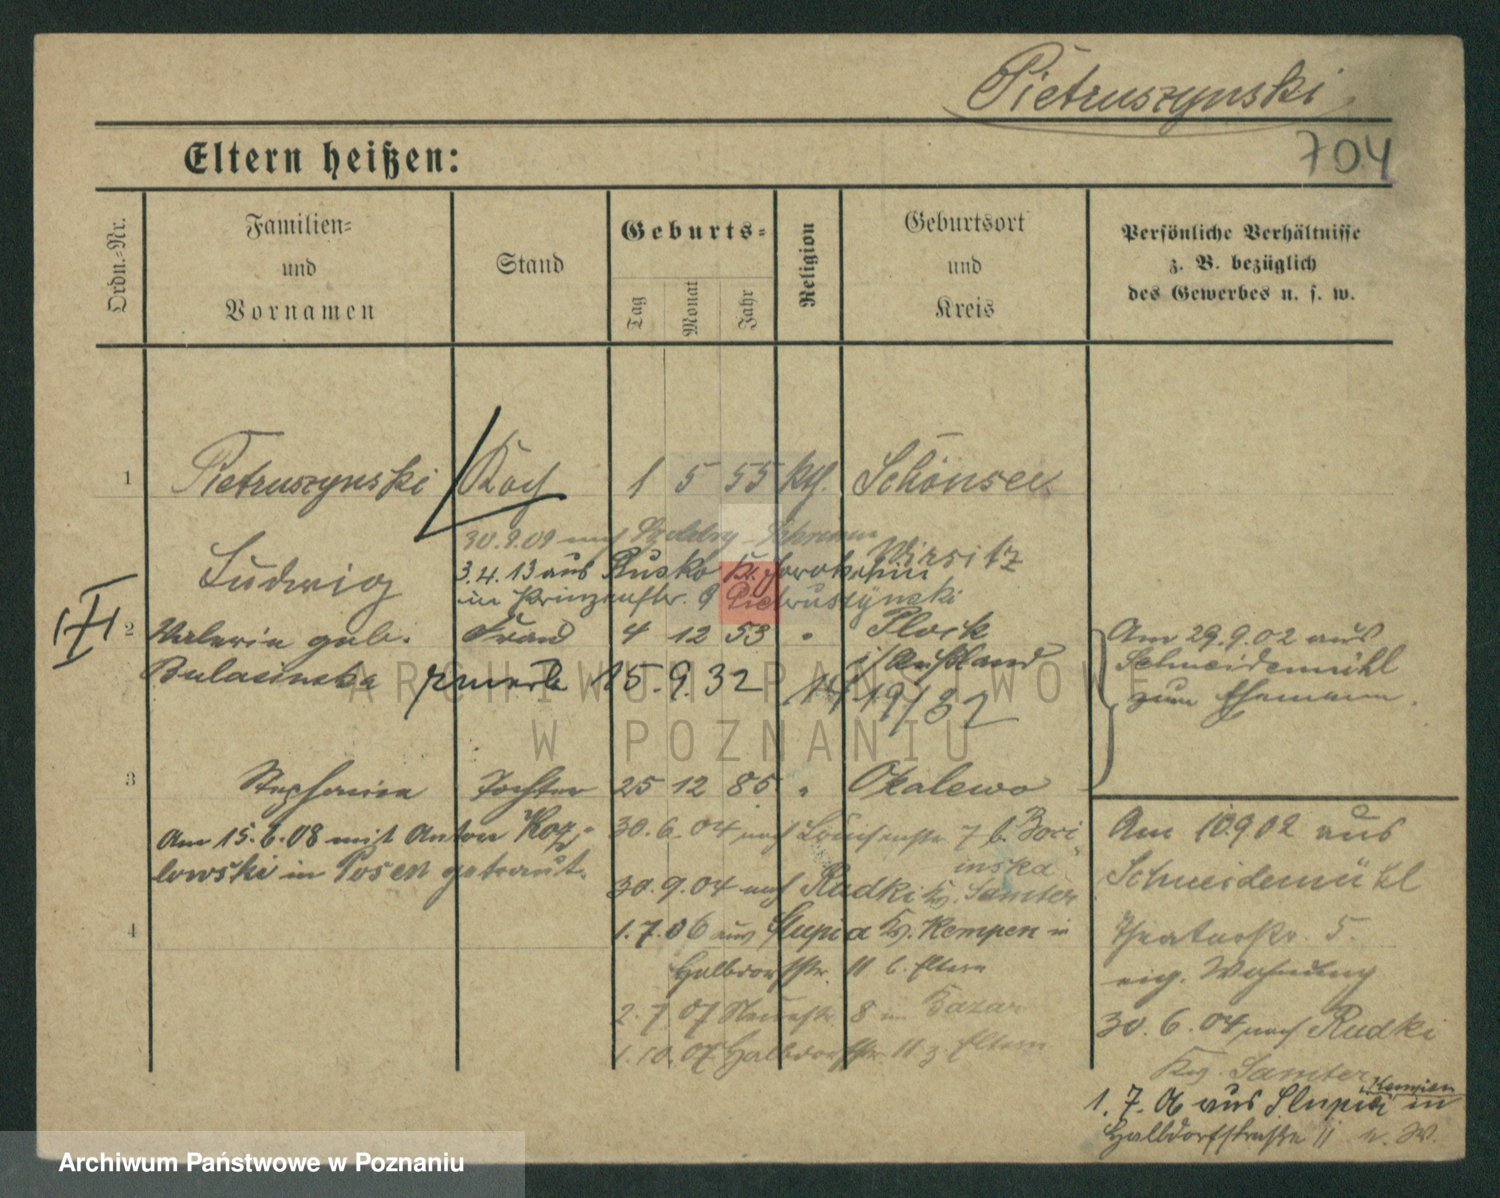 Pietruszynski
704
Eltern heißen:
Ordn.-Nr.
Familien-
und
Vornamen
Stand
Geburts-
Tag
Monat
Jahr
Religion
Geburtsort
und
Kreis
Persönliche Verhältnisse
z. B. bezüglich
des Gewerbes u. s. w.
1 Pietruszynski Koch 1 5 55 kth. Schönsee
Wirsitz
30.9.09 nach
Ludwig
3.4.13 aus Rusko Kr. Jarotschin
in Prinzenstr. 9 Pietruszynski
2 Valeria geb. Frau 4 12 53 " Plock
i/Rußland
15.9.32
19/32
Am 29.9.02 aus
Schneidemühl
zum Ehemann.
3 Stephanie Tochter 25 12 85 " Okalewo
Am 15.6.08 mit Anton Koz-
lowski in Posen getraut.
30.6.04 nach 7 b.
30.9.04 nach Rudki Kr. Samter
4
1.7.06 aus Slupia Kr. Kempen in
Halbdorfstr. 11 b. Eltern
2.7.07 Neuestr. 8 im Bazar
1.10.07 Halbdorfstr. 11 z. Eltern
Am 10.9.02 aus
Schneidemühl
Theaterstr. 5.
eig. Wohnung
30.6.04 nach Rudki
Kr. Samter
1.7.06 aus Slupia Kempen in
Halbdorfstraße 11 e. W.
ARCHIWUM PAŃSTWOWE
W POZNANIU
Archiwum Państwowe w Poznaniu